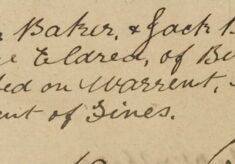 Baker, & Jack B
Eldred, of Be
ed on Warrent,
ent of Fines.